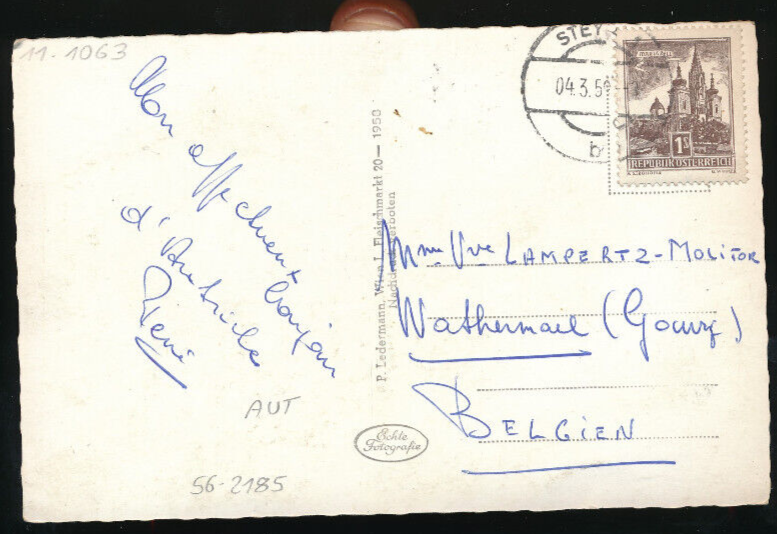 11-1063
Mon affectueux bonjour
d'Autriche
René
AUT
56-2185
P. Ledermann, Wien I, Fleischmarkt 20 — 1950
Nachdruck verboten
Echte
Fotografie
04.3.5
b
MARIAZELL
1S
REPUBLIK ÖSTERREICH
Mme Vve LAMPERTZ-MOLITOR
Wathermael (Gouvy)
BELGIEN